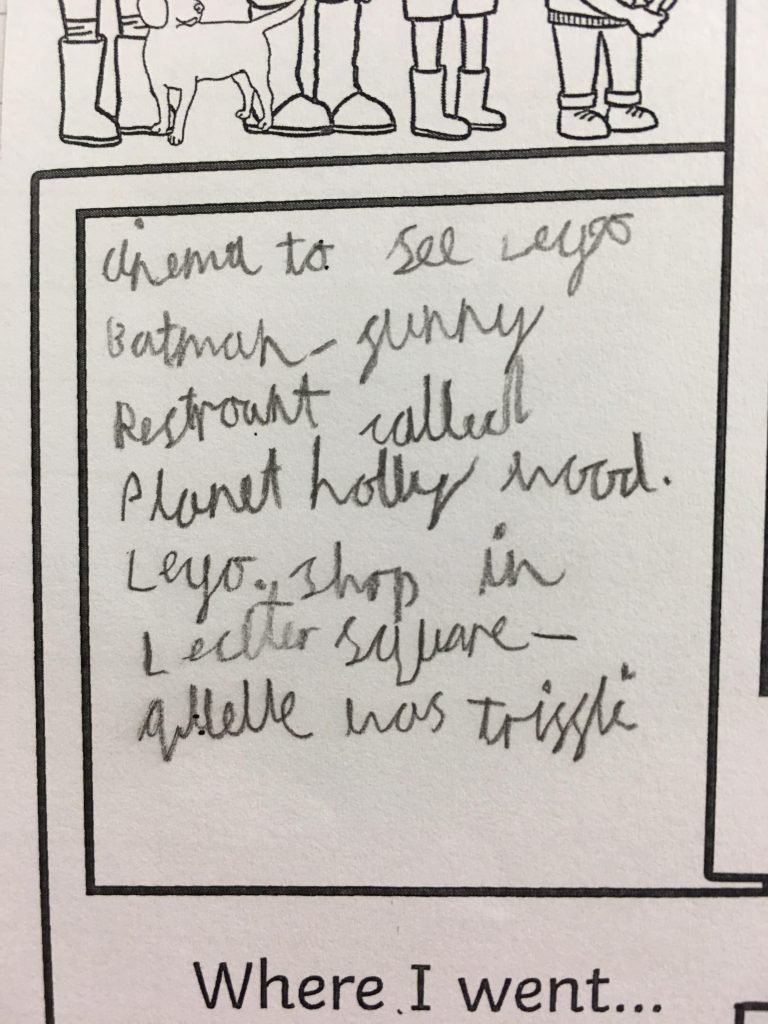 cinema to see Leygo
Batman - gunny
Restrount called
Planet hollywood.
Leyo. shop in
Lectter square -
was
Where I went...